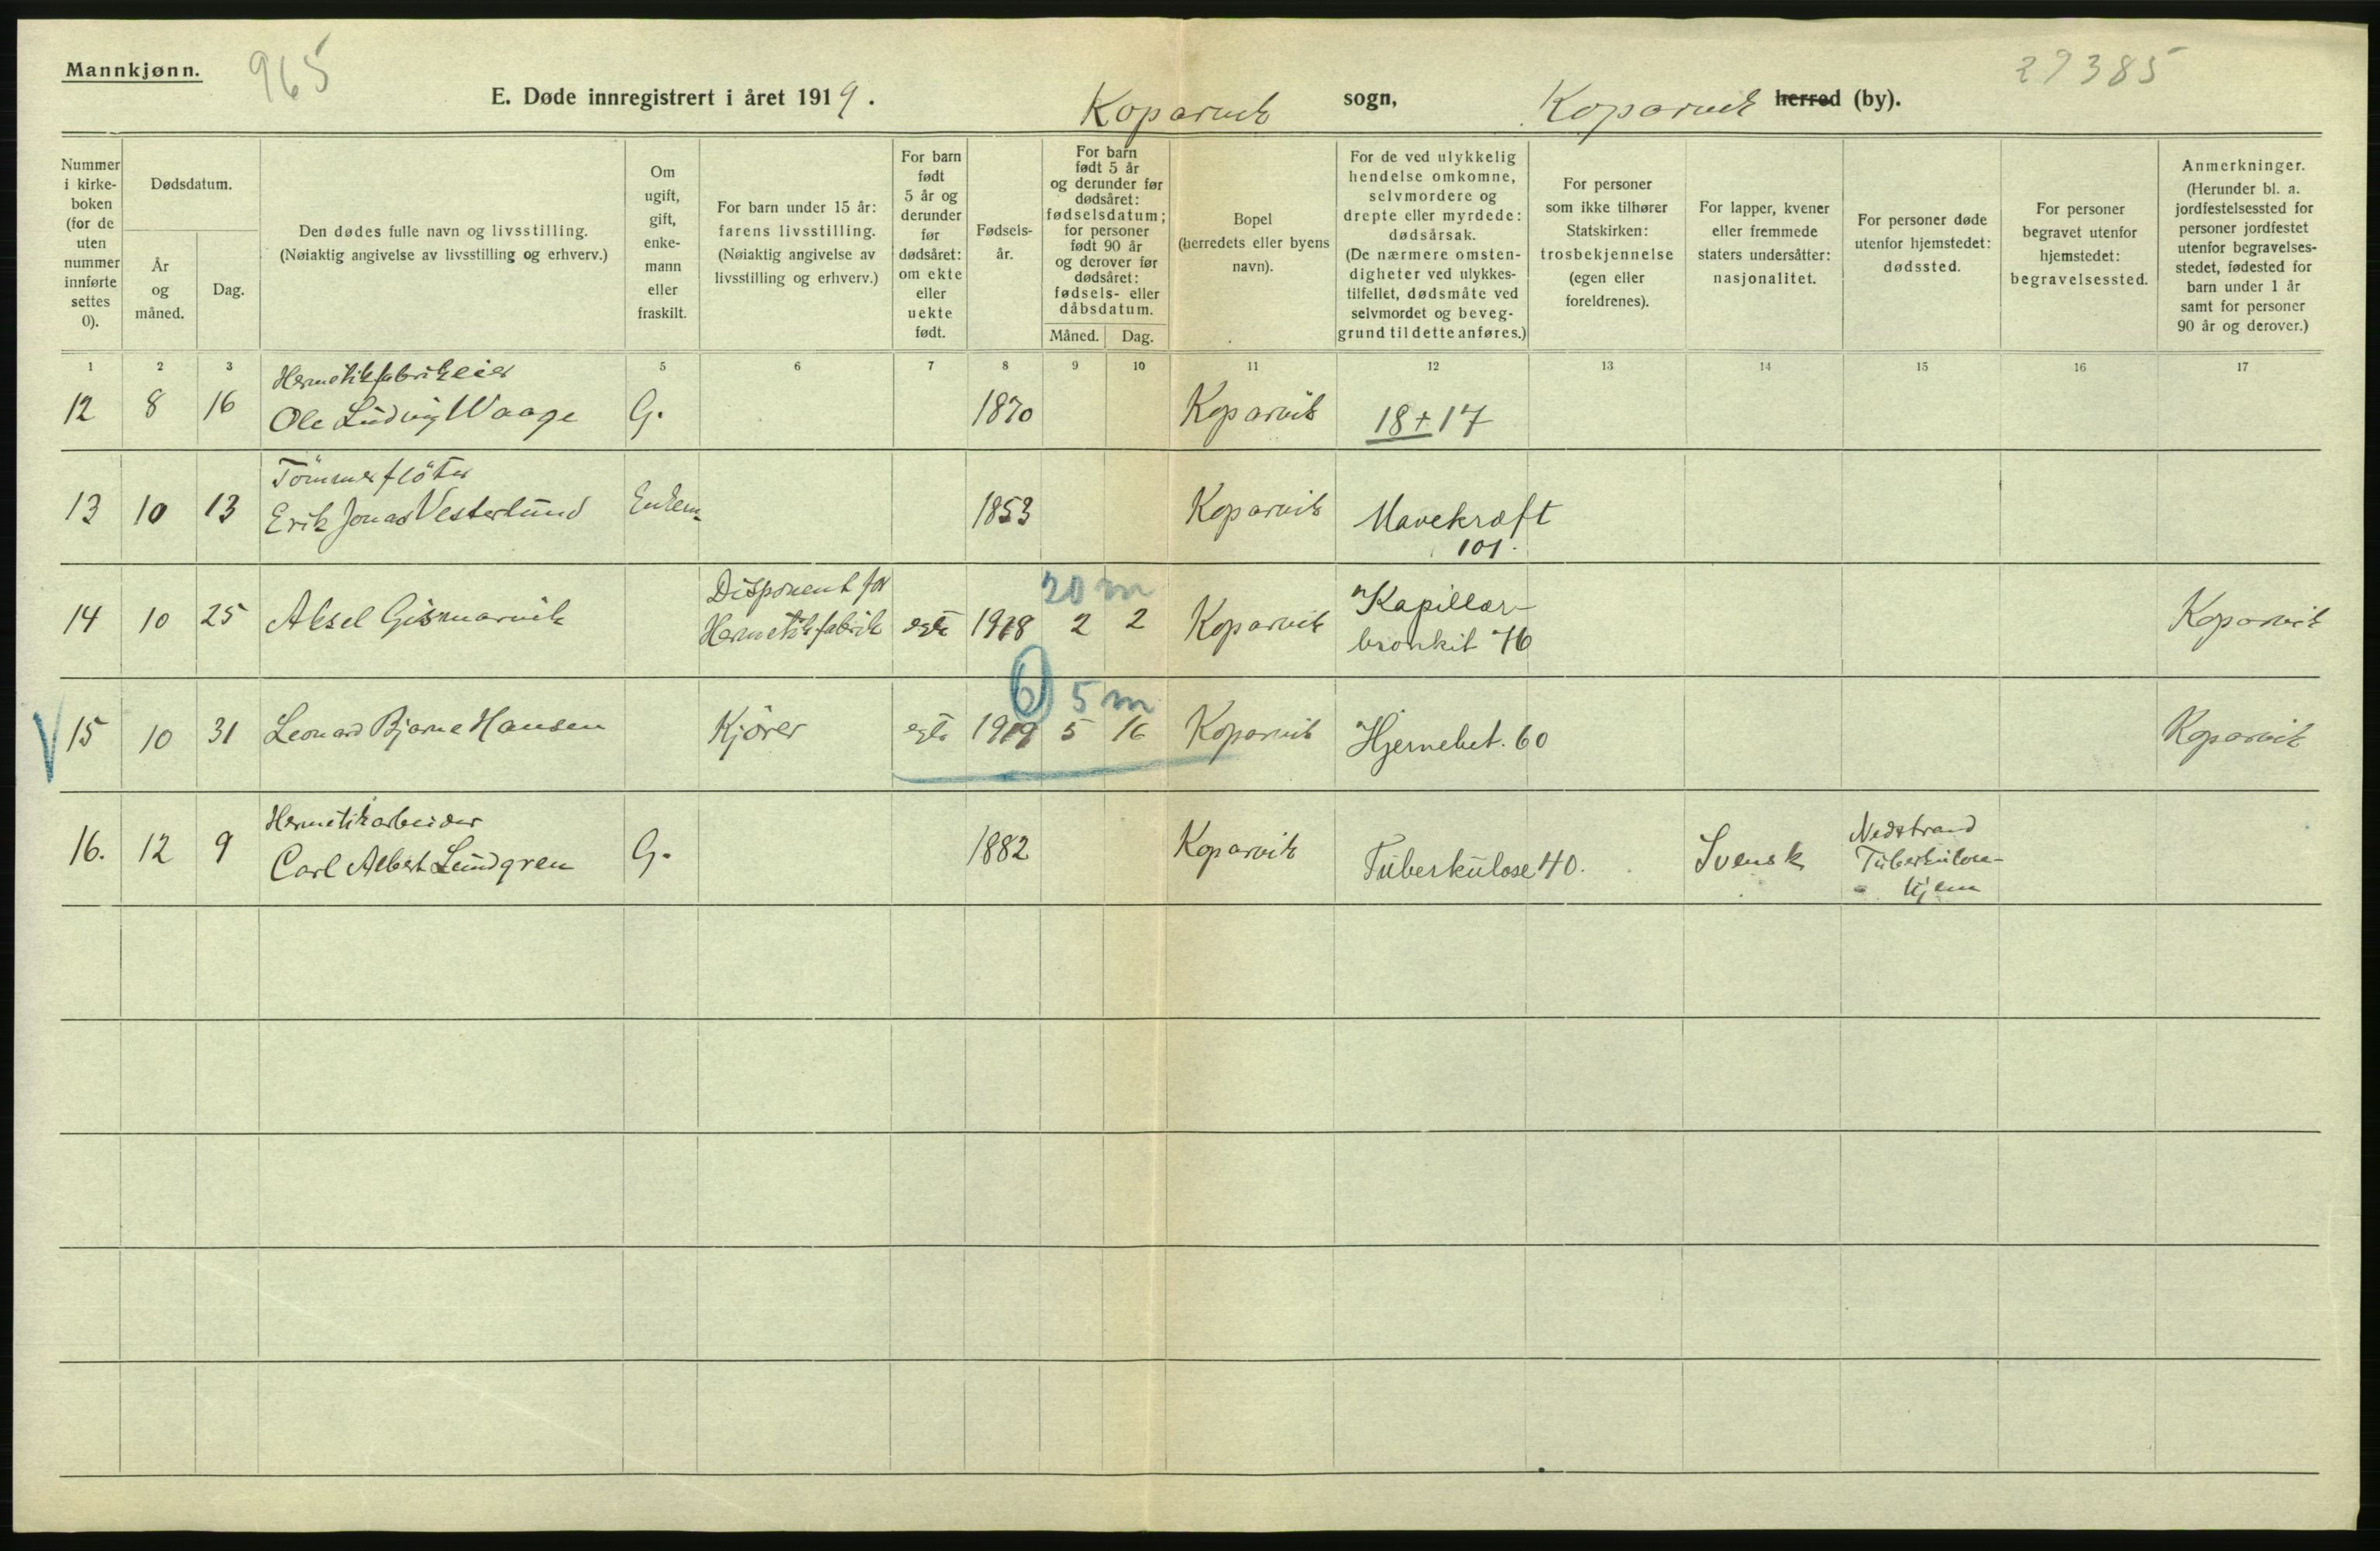 Mannkjønn.
965
27385
E. Døde innregistrert i året 1919.
Koparvik sogn, Koparvik herred (by).
Nummer i kirkeboken (for de uten nummer innførte settes 0).
Dødsdatum.
År og måned.
Dag.
Den dødes fulle navn og livsstilling.
(Nøiaktig angivelse av livsstilling og erhverv.)
Om ugift, gift, enkemann eller fraskilt.
For barn under 15 år: farens livsstilling.
(Nøiaktig angivelse av livsstilling og erhverv.)
For barn født 5 år og derunder før dødsåret: om ekte eller uekte født.
Fødselsår.
For barn født 5 år og derunder før dødsåret: fødselsdatum; for personer født 90 år og derover før dødsåret: fødsels- eller dåbsdatum.
Måned. Dag.
Bopel (herredets eller byens navn).
For de ved ulykkelig hendelse omkomne, selvmordere og drepte eller myrdede: dødsårsak.
(De nærmere omstendigheter ved ulykkestilfellet, dødsmåte ved selvmordet og beveggrund til dette anføres.)
For personer som ikke tilhører Statskirken: trosbekjennelse (egen eller foreldrenes).
For lapper, kvener eller fremmede staters undersåtter: nasjonalitet.
For personer døde utenfor hjemstedet: dødssted.
For personer begravet utenfor hjemstedet: begravelsessted.
Anmerkninger.
(Herunder bl. a. jordfestelsessted for personer jordfestet utenfor begravelsesstedet, fødested for barn under 1 år samt for personer 90 år og derover.)
1 2 3 5 6 7 8 9 10 11 12 13 14 15 16 17
Hermetikfabrikeier
12 8 16 Ole Ludvig Waage G. 1870 Koparvik 18+17
Tömmerflöter
13 10 13 Erik Jonas Vesterlund Enkem. 1853 Koparvik Mavekræft
101.
Disponent for 20 m Kapillær-
14 10 25 Aksel Gismarvik Hermetikfabrik egte 1918 2 2 Koparvik bronkit 76 Koparvik
6 5 m
V 15 10 31 Leonard Bjarne Hansen Kjörer egte 1919 5 16 Koparvik Hjernebet. 60 Koparvik
Hermetikarbeider Nedstrand
16. 12 9 Carl Albert Lundgren G. 1882 Koparvik Tuberkulose 40. Svensk Tuberkulose-
hjem